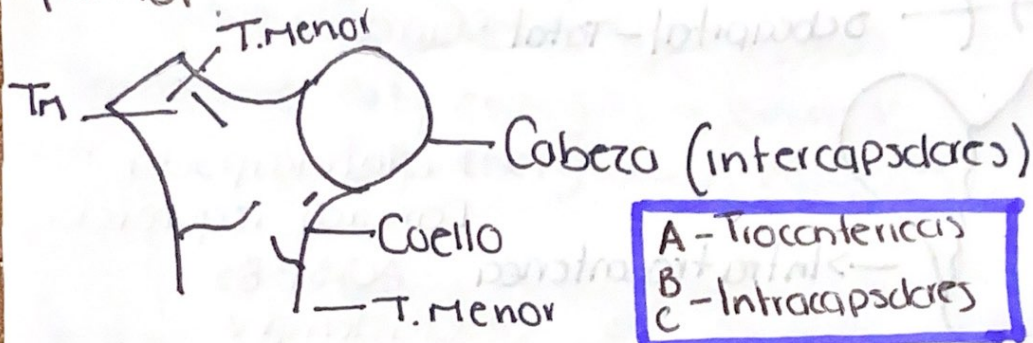 T.Menor
Tm
Cabeza (intercapsulares)
Cuello
T.Menor
A - Trocantericas
B
C - Intracapsulares